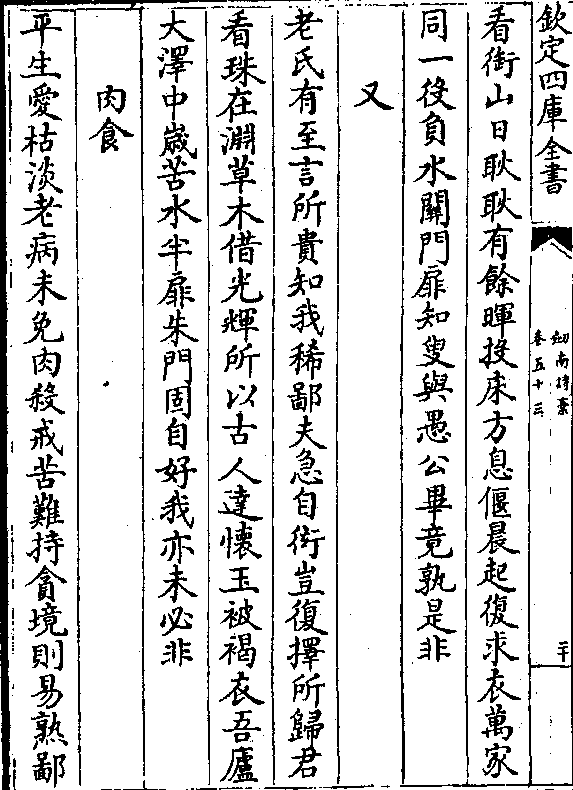 欽定四庫全書
劒南詩稾
卷五十三
二十
看銜山日耿耿有餘暉投床方息偃晨起復求衣萬家
同一役負水闢門扉知叟與愚公畢竟孰是非
又
老氏有至言所貴知我稀鄙夫急自衒豈復擇所歸君
看珠在淵草木借光輝所以古人達懐玉被褐衣吾廬
大澤中嵗苦水半扉朱門固自好我亦未必非
肉食
平生愛枯淡老病未免肉殺戒苦難持貪境則易熟鄙